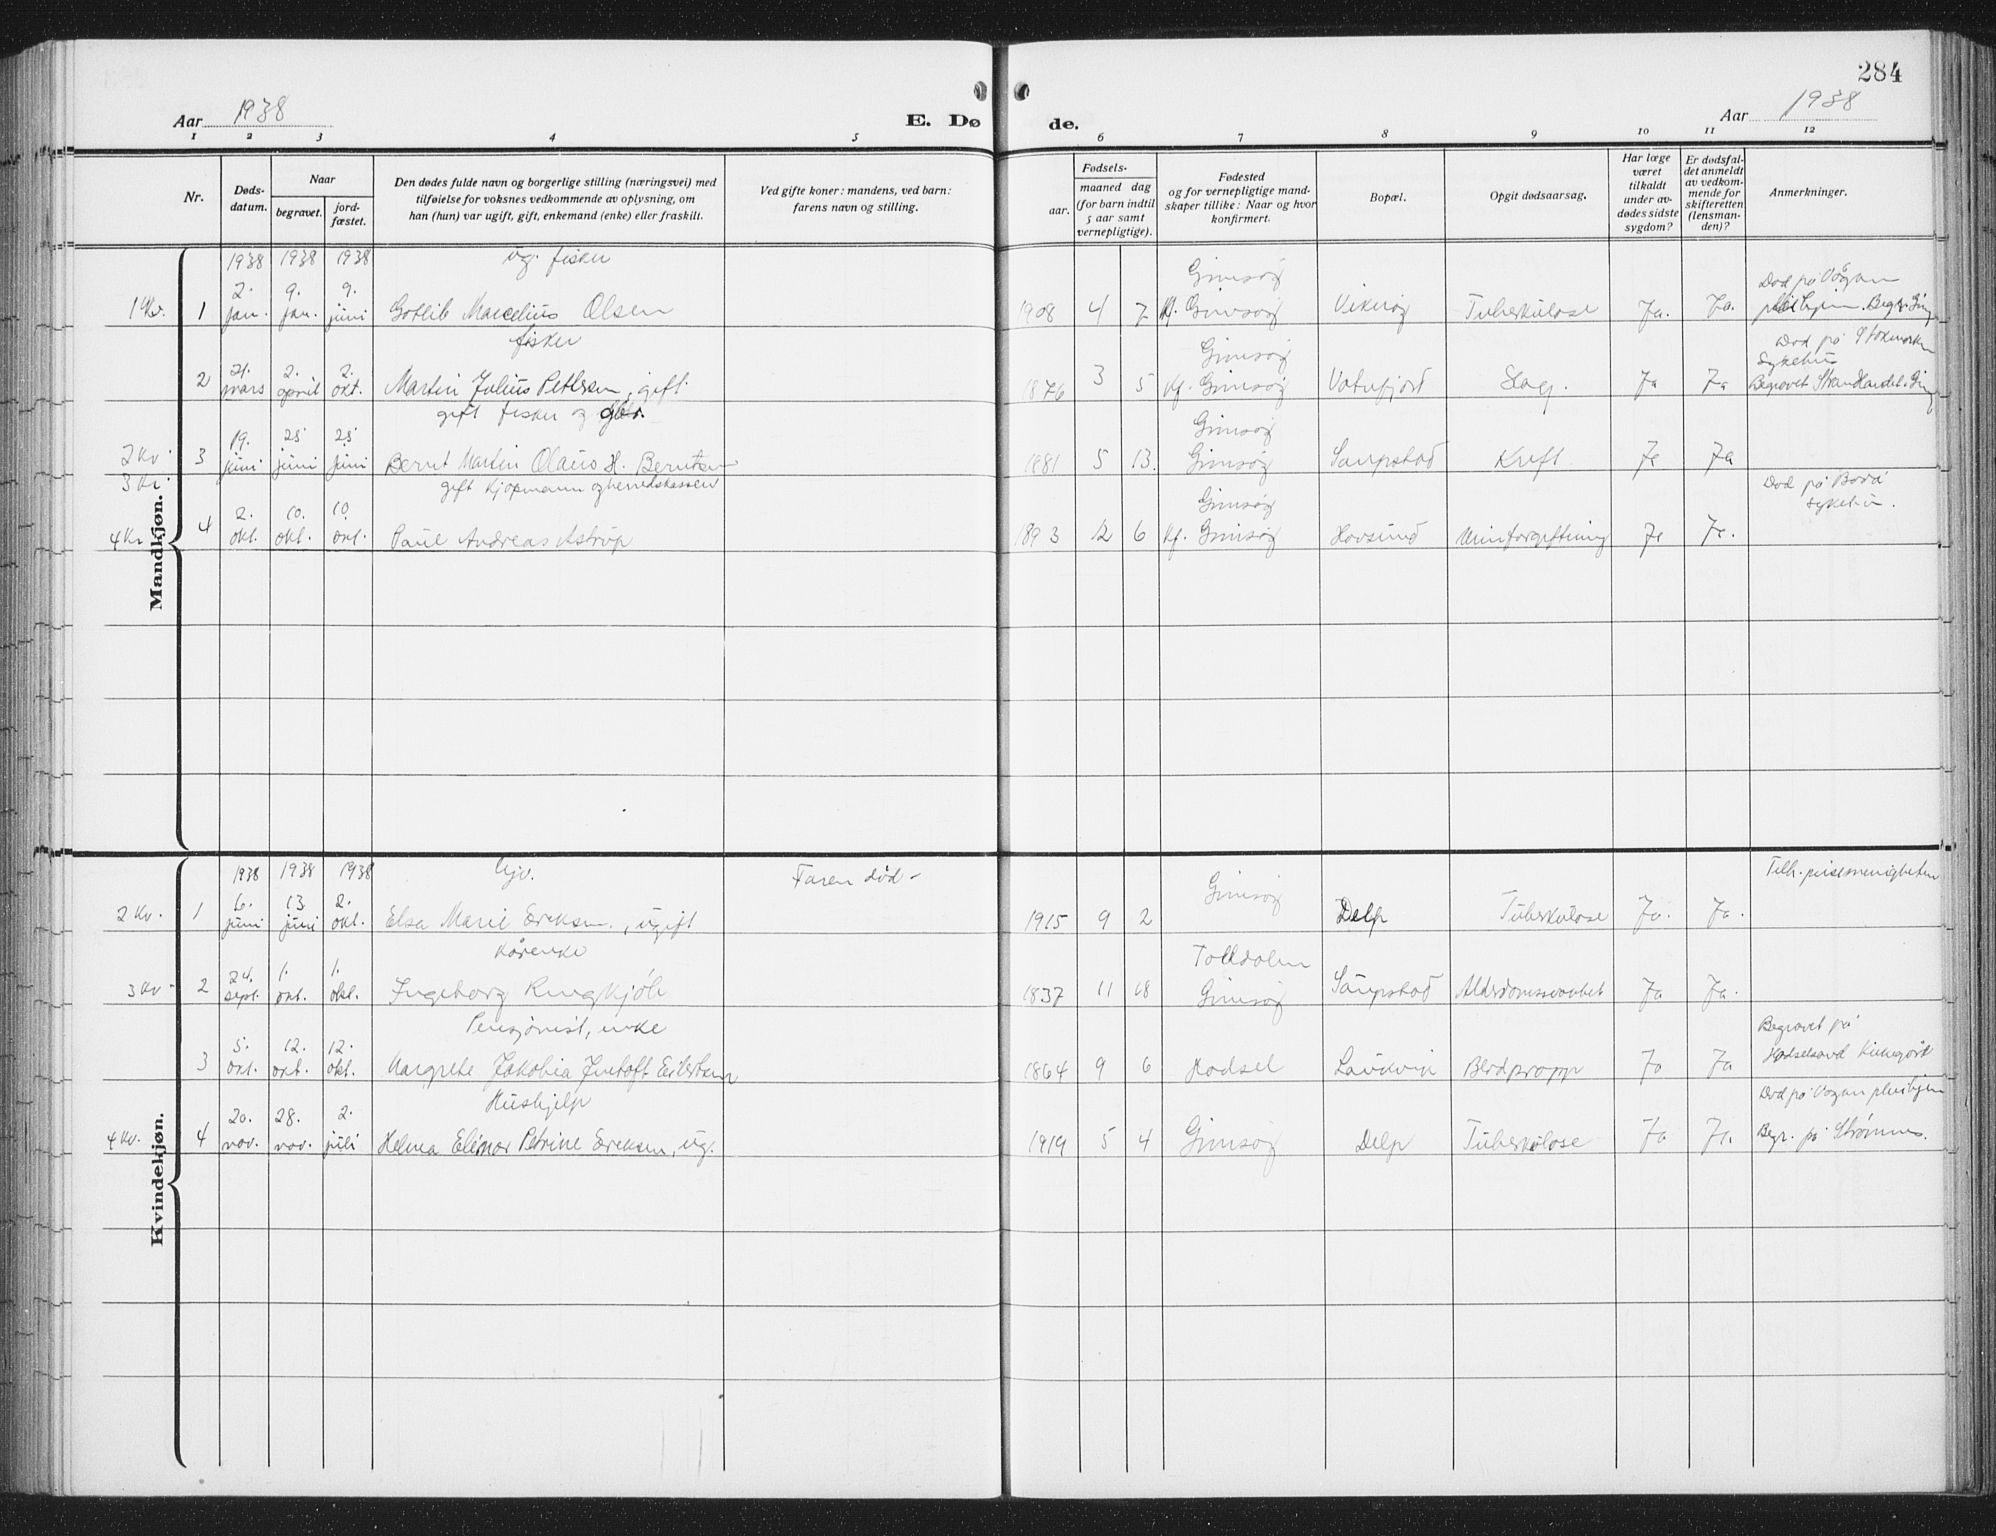 284
Aar 1938
E. Dø
de.
Aar 1938
1 2 3 4 5 6 7 8 9 10 11 12
Nr.
Døds-
datum.
Naar
begravet.
jord-
fæstet.
Den dødes fulde navn og borgerlige stilling (næringsvei) med
tilføielse for voksnes vedkommende av oplysning, om
han (hun) var ugift, gift, enkemand (enke) eller fraskilt.
Ved gifte koner: mandens, ved barn:
farens navn og stilling.
Fødsels-
aar.
maaned dag
(for barn indtil
5 aar samt
vernepligtige).
Fødested
og for vernepligtige mand-
skaper tillike: Naar og hvor
konfirmert.
Bopæl.
Opgit dødsaarsag.
Har læge
været
tilkaldt
under av-
dødes sidste
sygdom?
Er dødsfal-
det anmeldt
av vedkom-
mende for
skifteretten
(lensman-
den)?
Anmerkninger.
Mandkjøn.
1938 1938 1938 ug. fisker Gimsøy Død på Vågan
1 Kv. 1 2. jan. 9. jan. 9. juni Gotlib Marcelius Olsen 1908 4 7 Kf. Gimsøy Vikerøy Tuberkulose Ja. Ja.
fisker Gimsøy Død på Stokmarkn
sykehus
2 21. mars 2. april 2. okt. Martin Julius Pettersen, gift 1876 3 5 Kf. Gimsøy Vatnfjord Slag. Ja Ja Begravet
gift fisker og gbr. Gimsøy
2 Kv. 3 19. juni 25 juni 25 juni Bernt Martin Olaus H. Berntsen 1881 5 13. Gimsøy Saupstad Kreft Ja Ja
3 Kv. gift Kjøpmann og herredskasserer Gimsøy Død på Bodø
sykehus.
4 Kv 4 2. okt. 10. okt. 10. okt. Paul Andreas Astrup 1893 12 6 Kf. Gimsøy Hovsund Urinforgiftning Ja Ja.
Kvindekjøn.
1938 1938 1938 Hjv. Faren død - Gimsøy Tilh. pinsemenigheten
2 Kv. 1 6. juni 13 juni 2. okt. Elsa Marie Eriksen, ugift 1915 9 2 Delp Tuberkulose Ja. Ja.
Kårenke Tolldalen
3 Kv - 2 24. sept. 1. okt. 1. okt. Ingeborg Ringkjøb 1837 11 18 Gimsøy Saupstad Alderdomssvakhet Ja Ja.
Pensjonist, enke Begravet på
3 5. okt. 12. okt. 12. okt. Margrete Jakobia Jentoft Eilertsen 1864 9 6 Hadsel Laukvik Blodpropp Ja Ja Hadselsand kirkegård
Hushjelp Død på Vågan pleiehjem
4 Kv. 4 20. nov. 28. nov. 2. juli Helma Elinor Petrine Eriksen, ug. 1919 5 4 Gimsøy Delp Tuberkulose Ja Ja. Begr. på Strømnes.